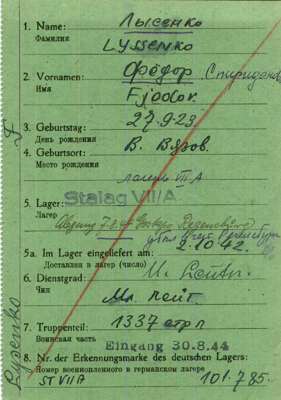 1. Name: Лысенко
Фамилия
Lyssenko
2. Vornamen: Фёдор Спиридон
Имя
Fjodor.
3. Geburtstag: 27.9.23.
День рождения
4. Geburtsort: В. Вяров.
Место рождения
лагерь VII A
Stalag VII/A
5. Lager:
Лагерь
5a. Im Lager eingeliefert am: 2.10.42.
Доставлен в лагерь (число)
6. Dienstgrad: M. Leutn.
Чин
Мл. лейт.
7. Truppenteil: 1337 стр п
Воинская часть
Eingang 30.8.44
8. Nr. der Erkennungsmarke des deutschen Lagers:
Номер военнопленного в германском лагере
ST VII A 101.785.
Lyssenko